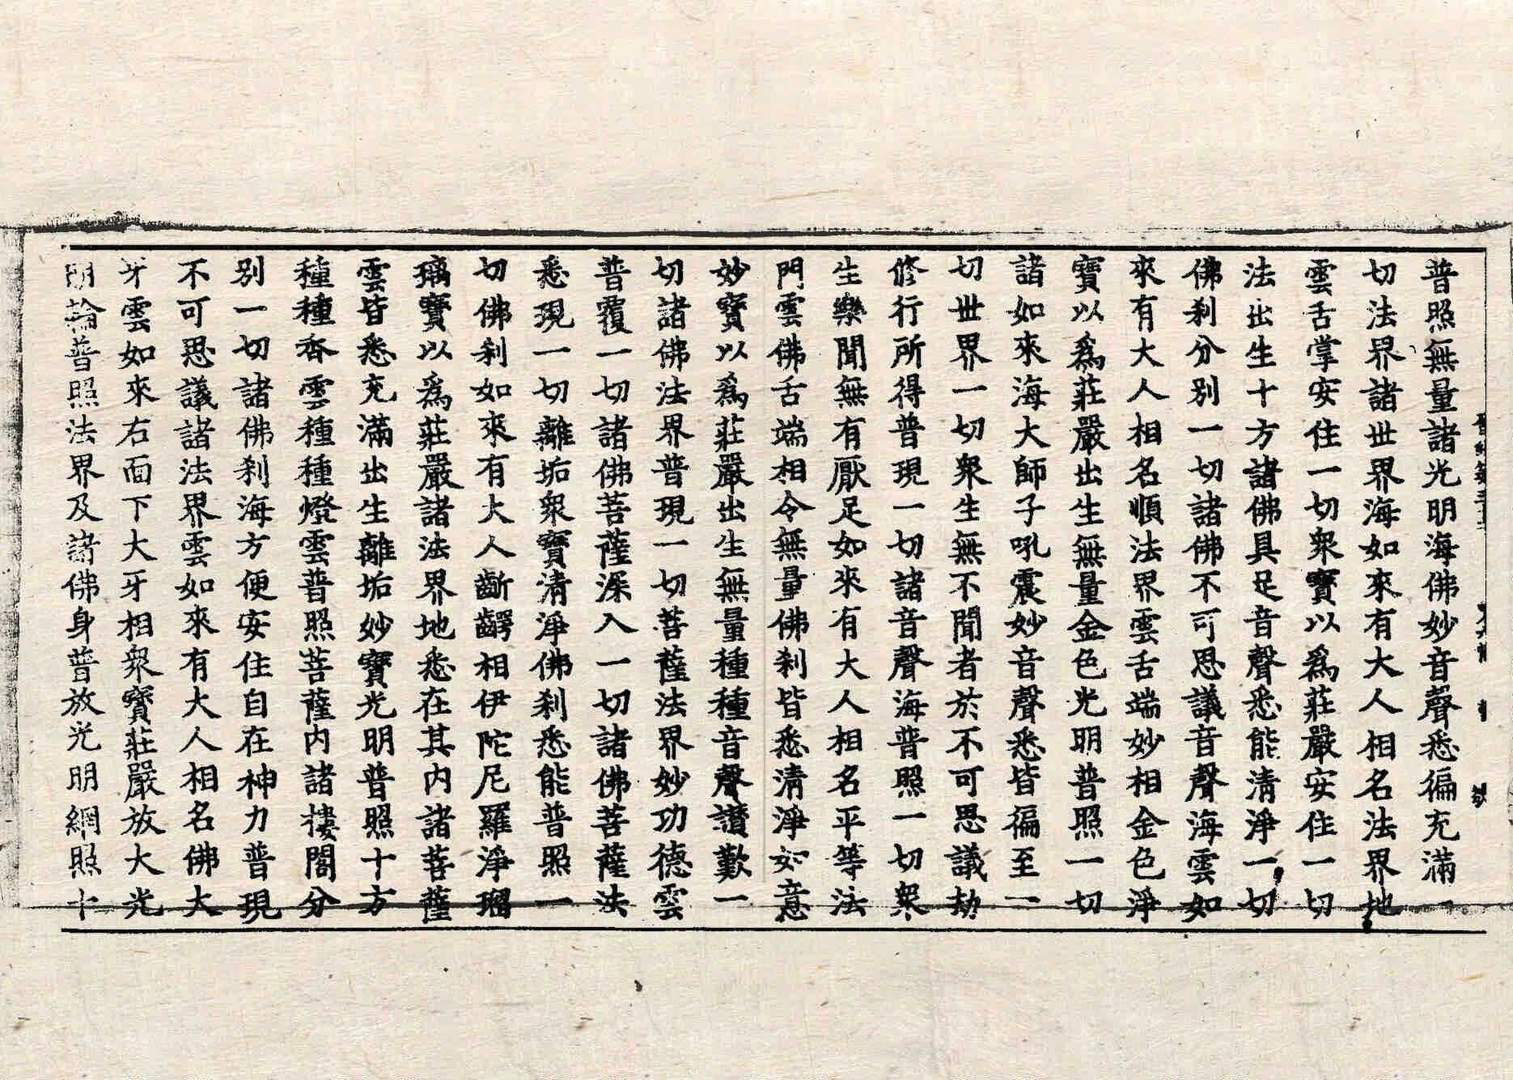 普照無量諸光明海佛妙音聲悉徧充滿一
切法界諸世界海如來有大人相名法界地
雲舌掌安住一切衆寶以爲莊嚴安住一切
法出生十方諸佛具足音聲悉能清淨一切
佛刹分別一切諸佛不可思議音聲海雲如
來有大人相名順法界雲舌端妙相金色淨
寶以爲莊嚴出生無量金色光明普照一切
諸如來海大師子吼震妙音聲悉皆徧至一
切世界一切衆生無不聞者於不可思議劫
修行所得普現一切諸音聲海普照一切衆
生樂聞無有厭足如來有大人相名平等法
門雲佛舌端相令無量佛刹皆悉清淨如意
妙寶以爲莊嚴出生無量種種音聲讃歎一
切諸佛法界普現一切菩薩法界妙功德雲
普覆一切諸佛菩薩深入一切諸佛菩薩法
悉現一切離垢衆寶清淨佛刹悉能普照一
切佛刹如來有大人齗齶相伊陀尼羅淨瑠
璃寶以爲莊嚴諸法界地悉在其內諸菩薩
雲皆悉充滿出生離垢妙寶光明普照十方
種種香雲種種燈雲普照菩薩内諸樓閣分
別一切諸佛刹海方便安住自在神力普現
不可思議諸法界雲如來有大人相名佛大
牙雲如來右面下大牙相衆寶莊嚴放大光
明輪普照法界及諸佛身普放光明網照十